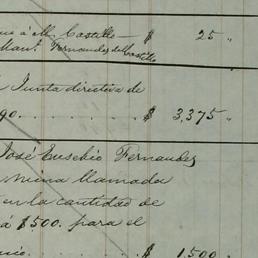 á M. Castillo — $ 25 "
Man.l Fernandez del Castillo
Junta directiva de
go. $ 3,375 "
José Eusebio Fernandez
mina llamada
en la cantidad de
á $500. para el
$ 1,500 "